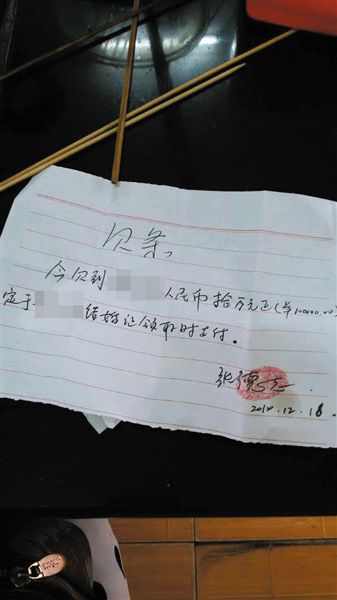 欠条
今欠到 人民币拾万元正(¥100000.00)
定于 结婚证领取时支付。
张德
12.18.